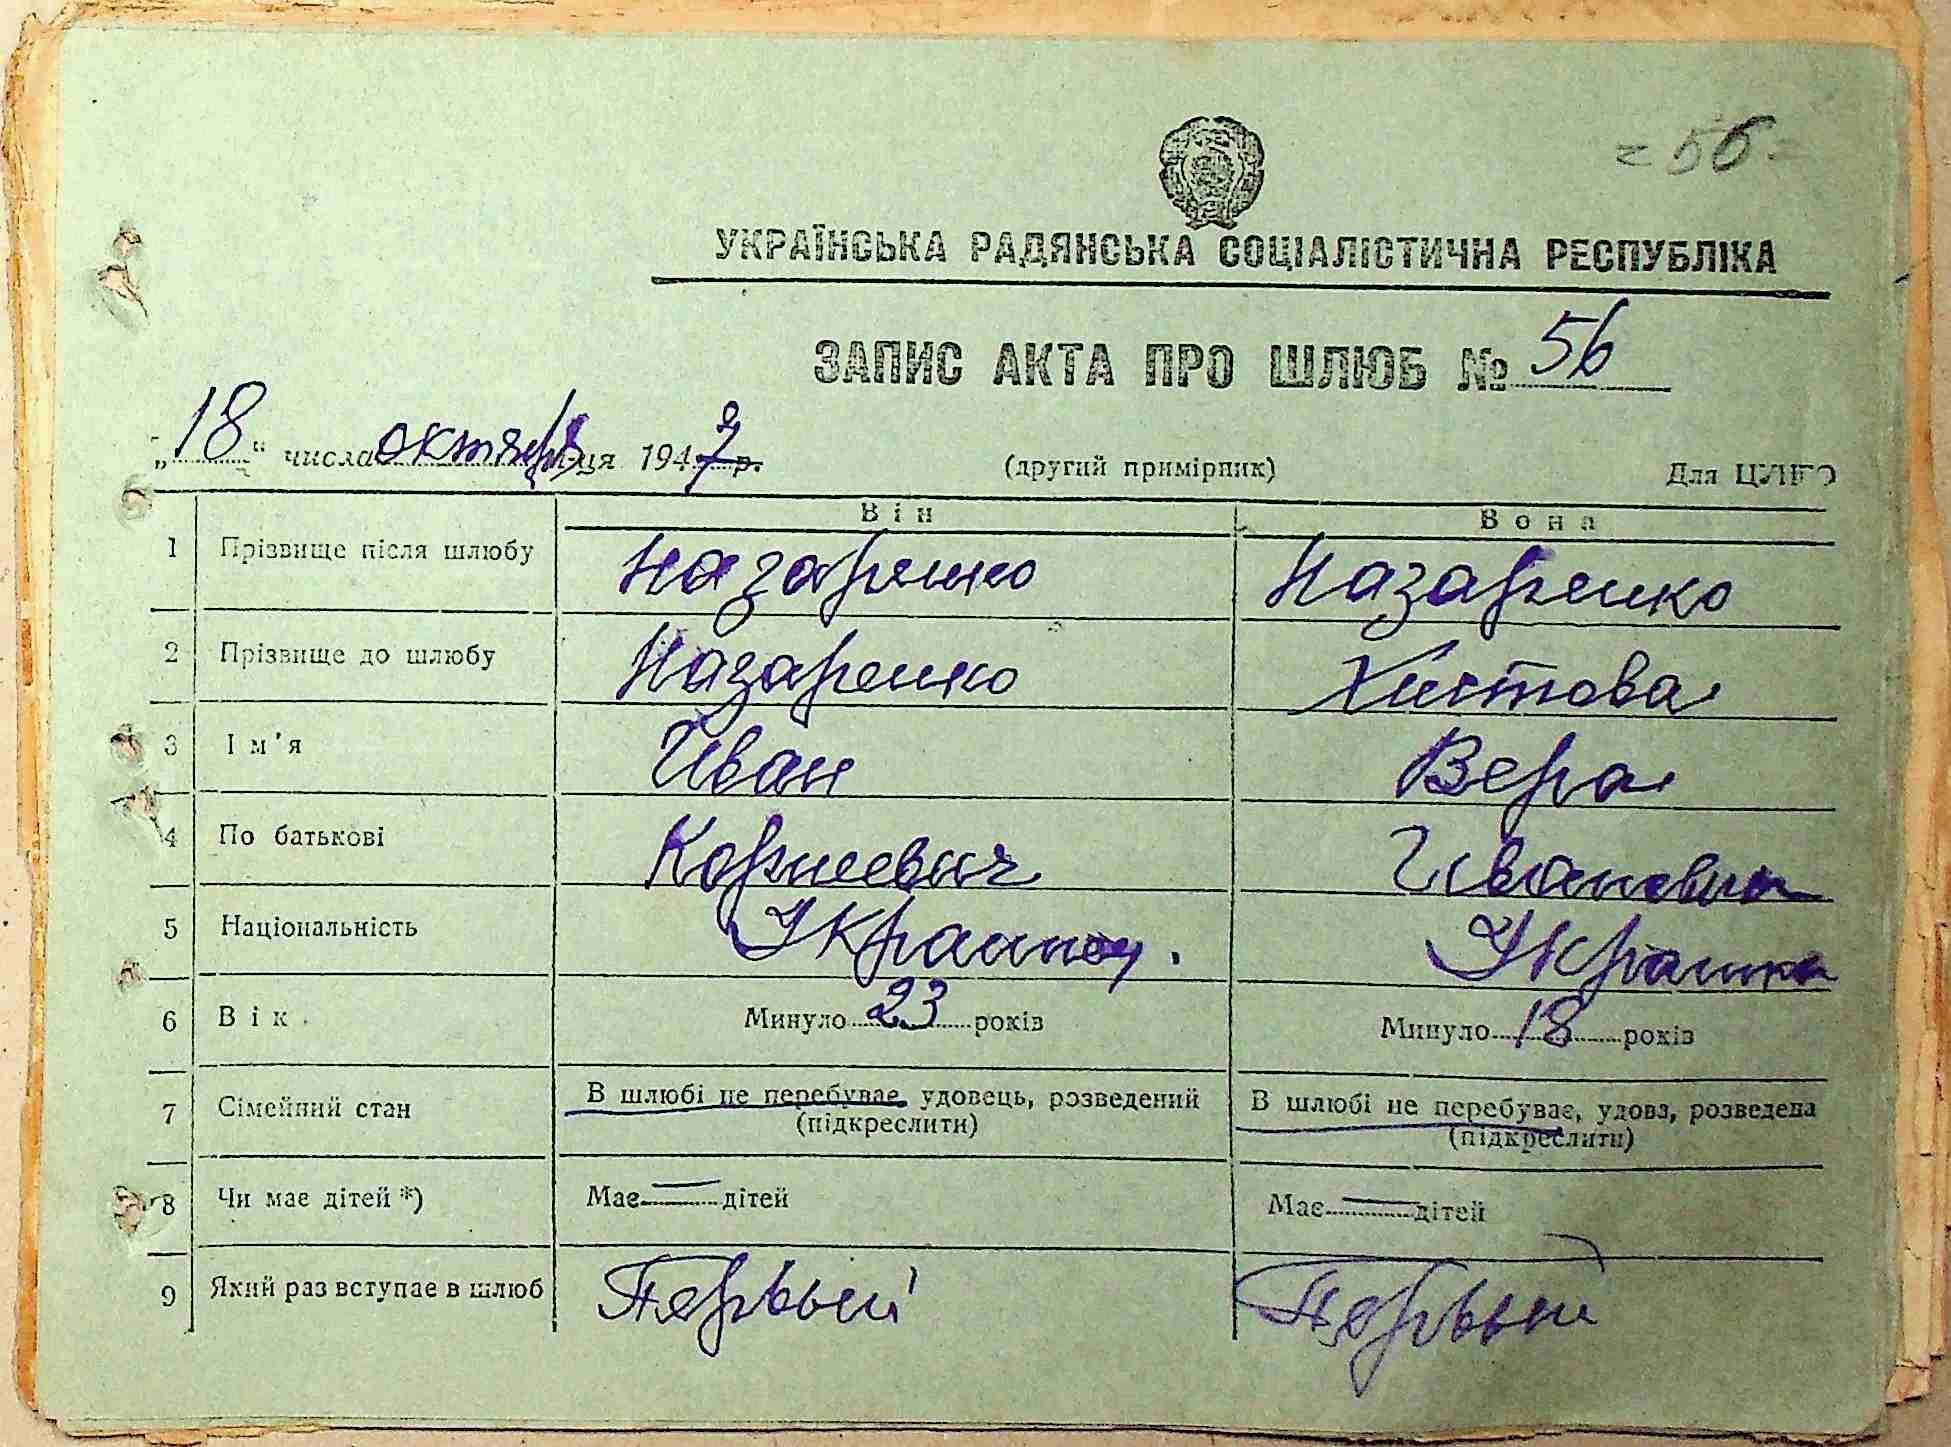 = 56 =
УКРАЇНСЬКА РАДЯНСЬКА СОЦІАЛІСТИЧНА РЕСПУБЛІКА
ЗАПИС АКТА ПРО ШЛЮБ № 56
„18“ числа октября місяця 1947 р.
(другий примірник)
Для ЦУНГО
Він Вона
1 Прізвище після шлюбу Назаренко Назаренко
2 Прізвище до шлюбу Назаренко Хистова
3 Ім'я Иван Вера
4 По батькові Корнеевич Ивановна
5 Національність Украинец. Украинка
6 Вік Минуло 23 років Минуло 18 років
7 Сімейний стан В шлюбі не перебуває, удовець, розведений В шлюбі не перебуває, удова, розведена
(підкреслити) (підкреслити)
8 Чи має дітей *) Має — дітей Має — дітей
9 Який раз вступає в шлюб Первый Первый